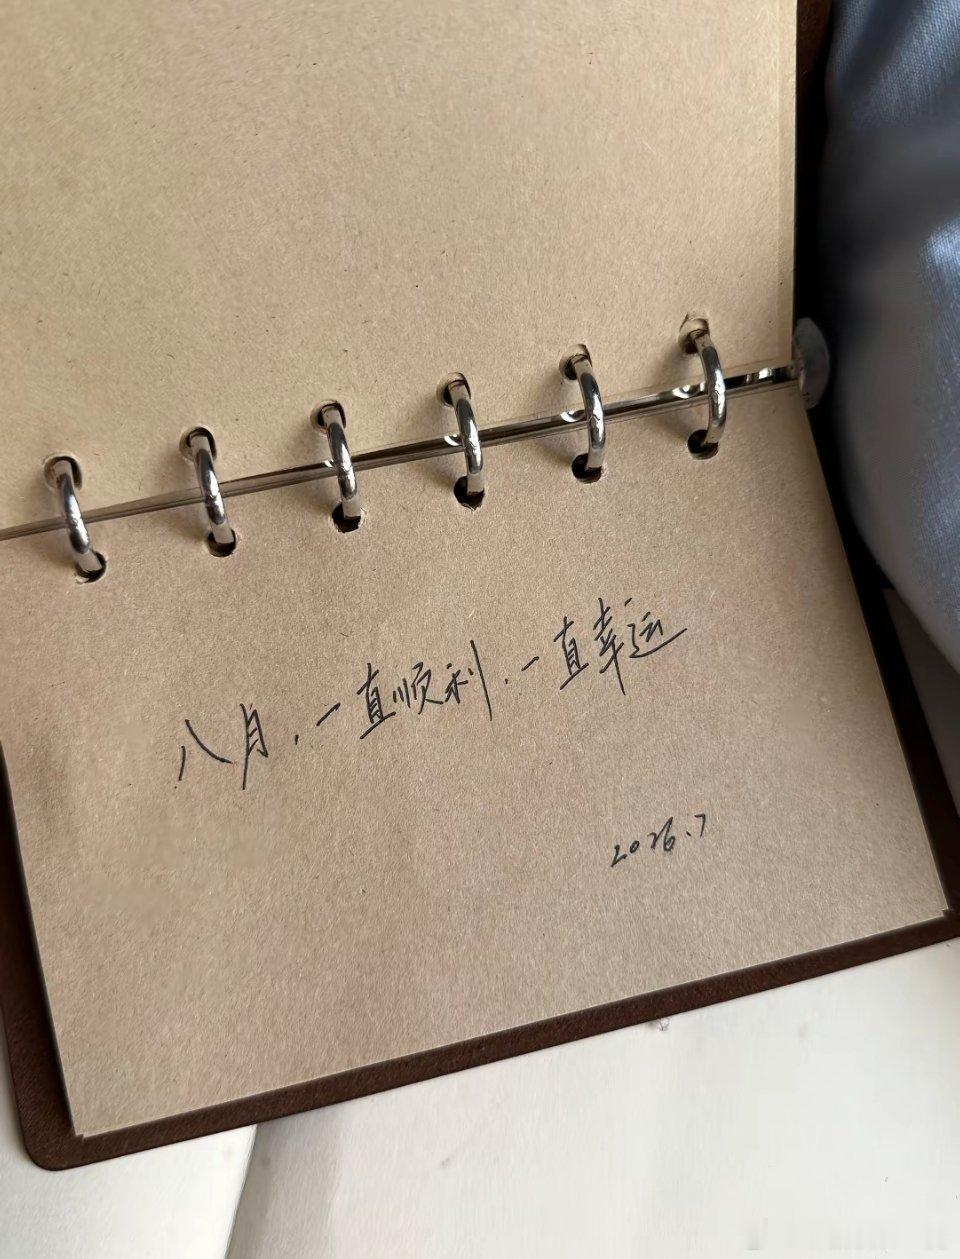 八月，一直顺利，一直幸运
2026.7